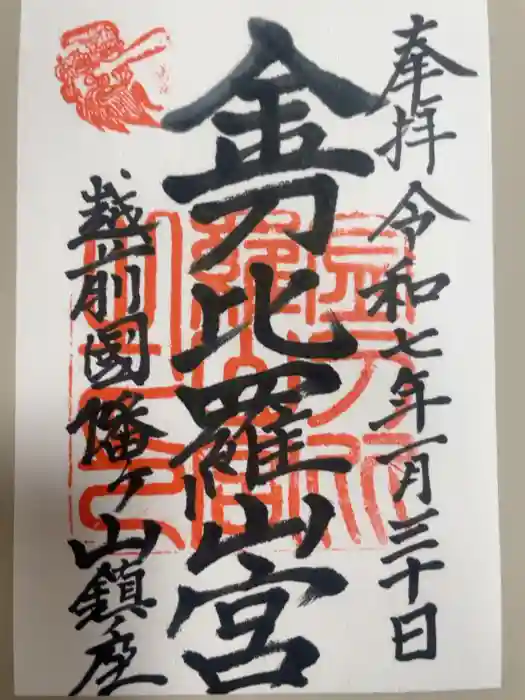 奉拝 令和七年一月三十日
金刀比羅山宮
越前國幡ヶ山鎮座